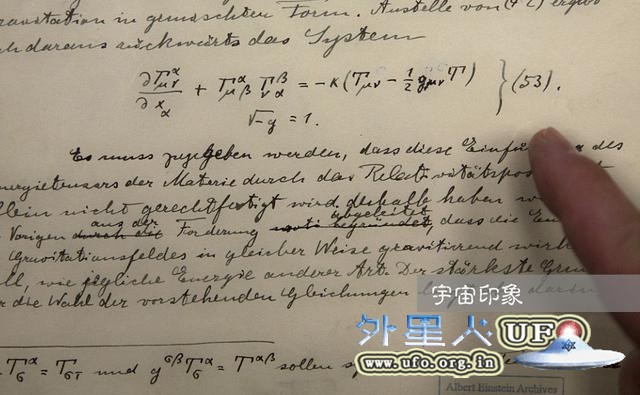 ravitation in gemischten Form. Anstelle von (42) ergibt
ch daraus rückwärts das System
∂Γ^α_μν / ∂x_α + Γ^α_μβ Γ^β_να = −κ (T_μν − 1/2 g_μν T) } (53).
√−g = 1.
Es muss zugegeben werden, dass diese des
nergietensors der Materie durch das
llein nicht gerechtfertigt wird; deshalb haben
aus der abgeleitet
Vorigen durch die Forderung dass die
Gravitationsfeldes in gleicher Weise gravitirend
ll, wie jegliche Energie anderer Art. Der stärkste
r die Wahl der vorstehenden Gleichungen
und sollen
宇宙印象
外星人UFO
www.ufo.org.in
Albert Einstein Archives